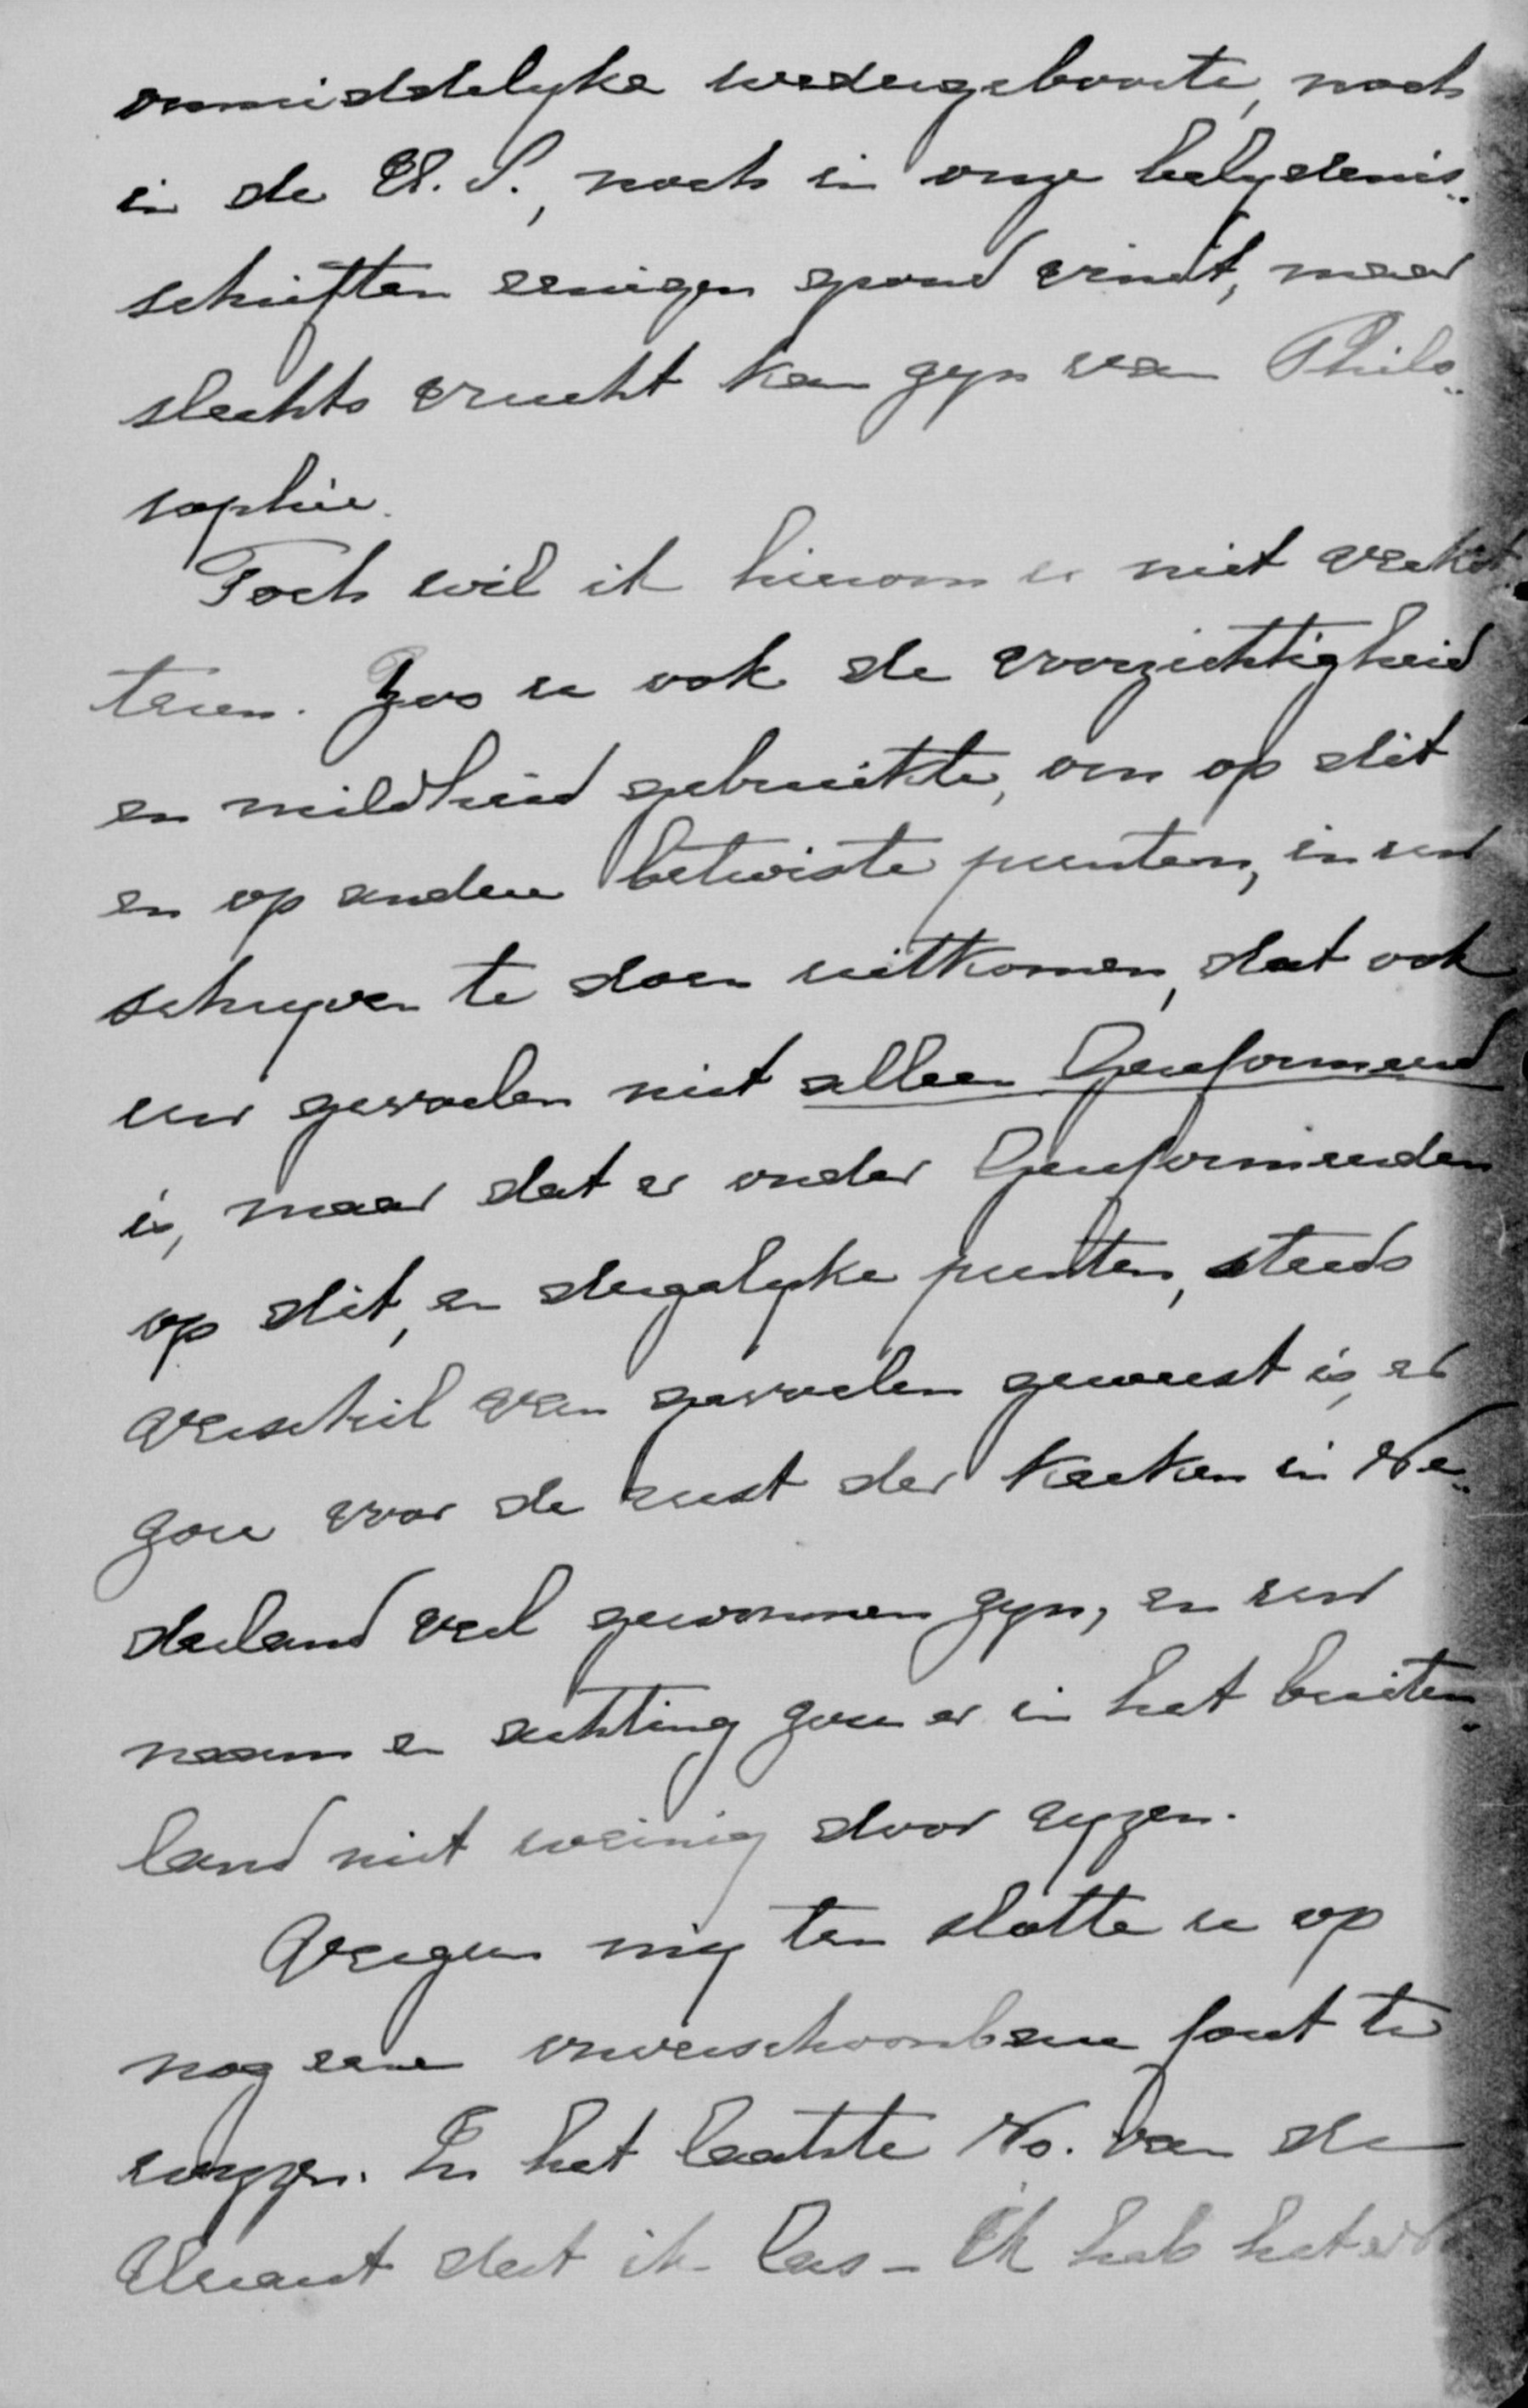 onmiddelyke wedergeboorte, noch
in de H. S., noch in onze belydenis„
schriften eenigen grond vindt, maar
slechts vrucht kan zyn van Philo„
sophie.
Toch wil ik hierom u niet verket„
teren. Zoo u ook de voorzichtigheid
en mildheid gebruikte, om op dit
en op andere betwiste punten, in uw
schryven te doen uitkomen, dat ook
uw gevoelen niet alleen Gereformeerd
is, maar dat er onder Gereformeerden
op dit, en dergelyke punten, steeds
verschil van gevoelen geweest is, er
zou voor de rust der Kerken in Ne„
derland veel gewonnen zyn, en uw
naam en achting zou er in het buiten„
land niet weinig door ryzen.
Vergun my ten slotte u op
nog eene onverschoonbare fout te
wyzen. In het laatste No. van de
Heraut dat ik las - Ik heb het